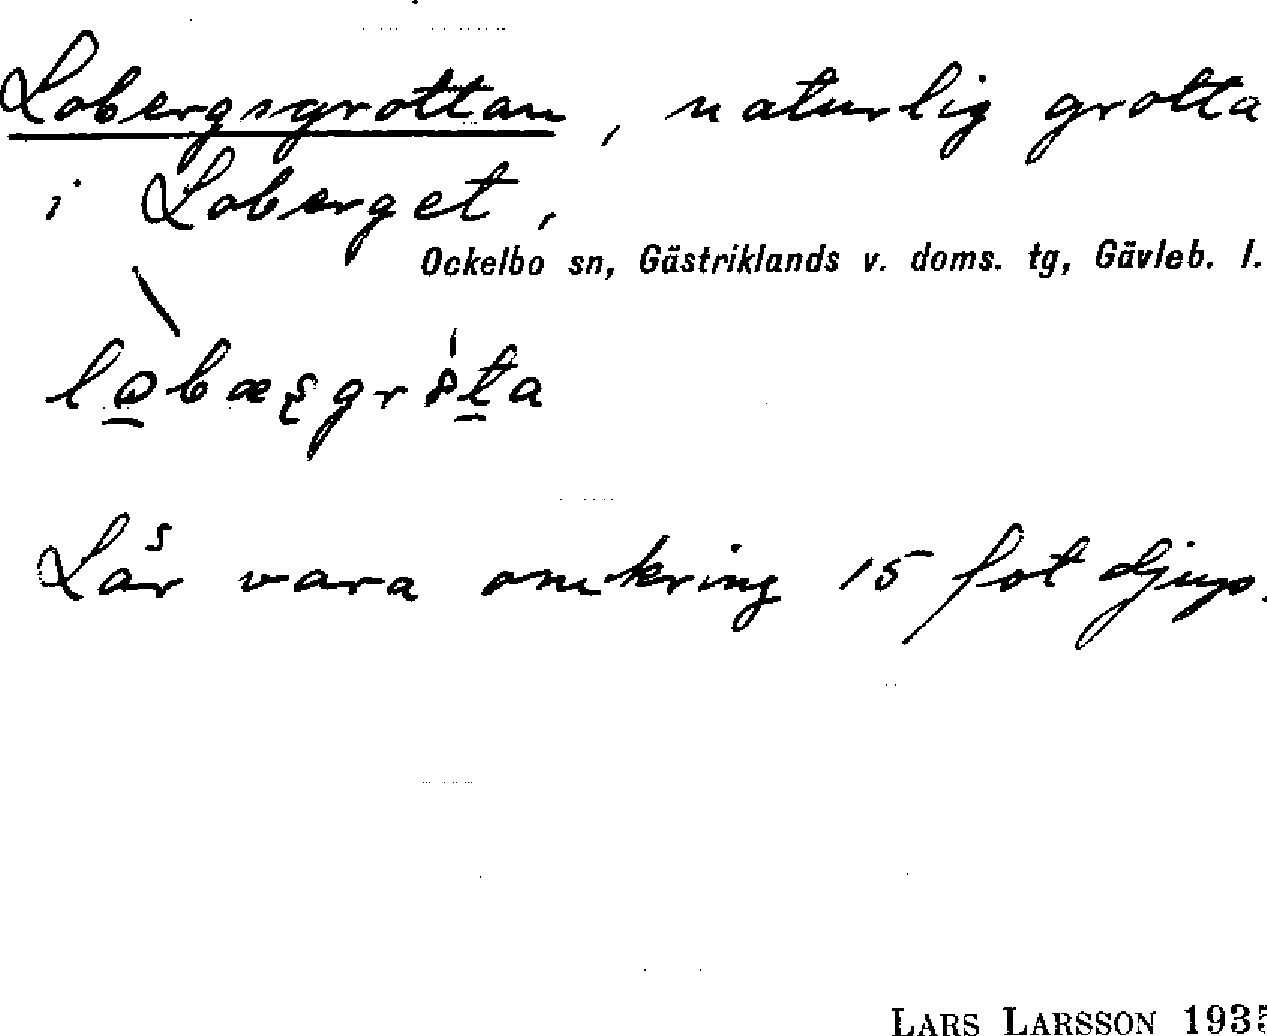 Lobergsgrottan, naturlig grotta
i Loberget,
Ockelbo sn, Gästriklands v. doms. tg, Gävleb. l.
Lår vara omkring 15 fot djup.
LARS LARSSON 1935